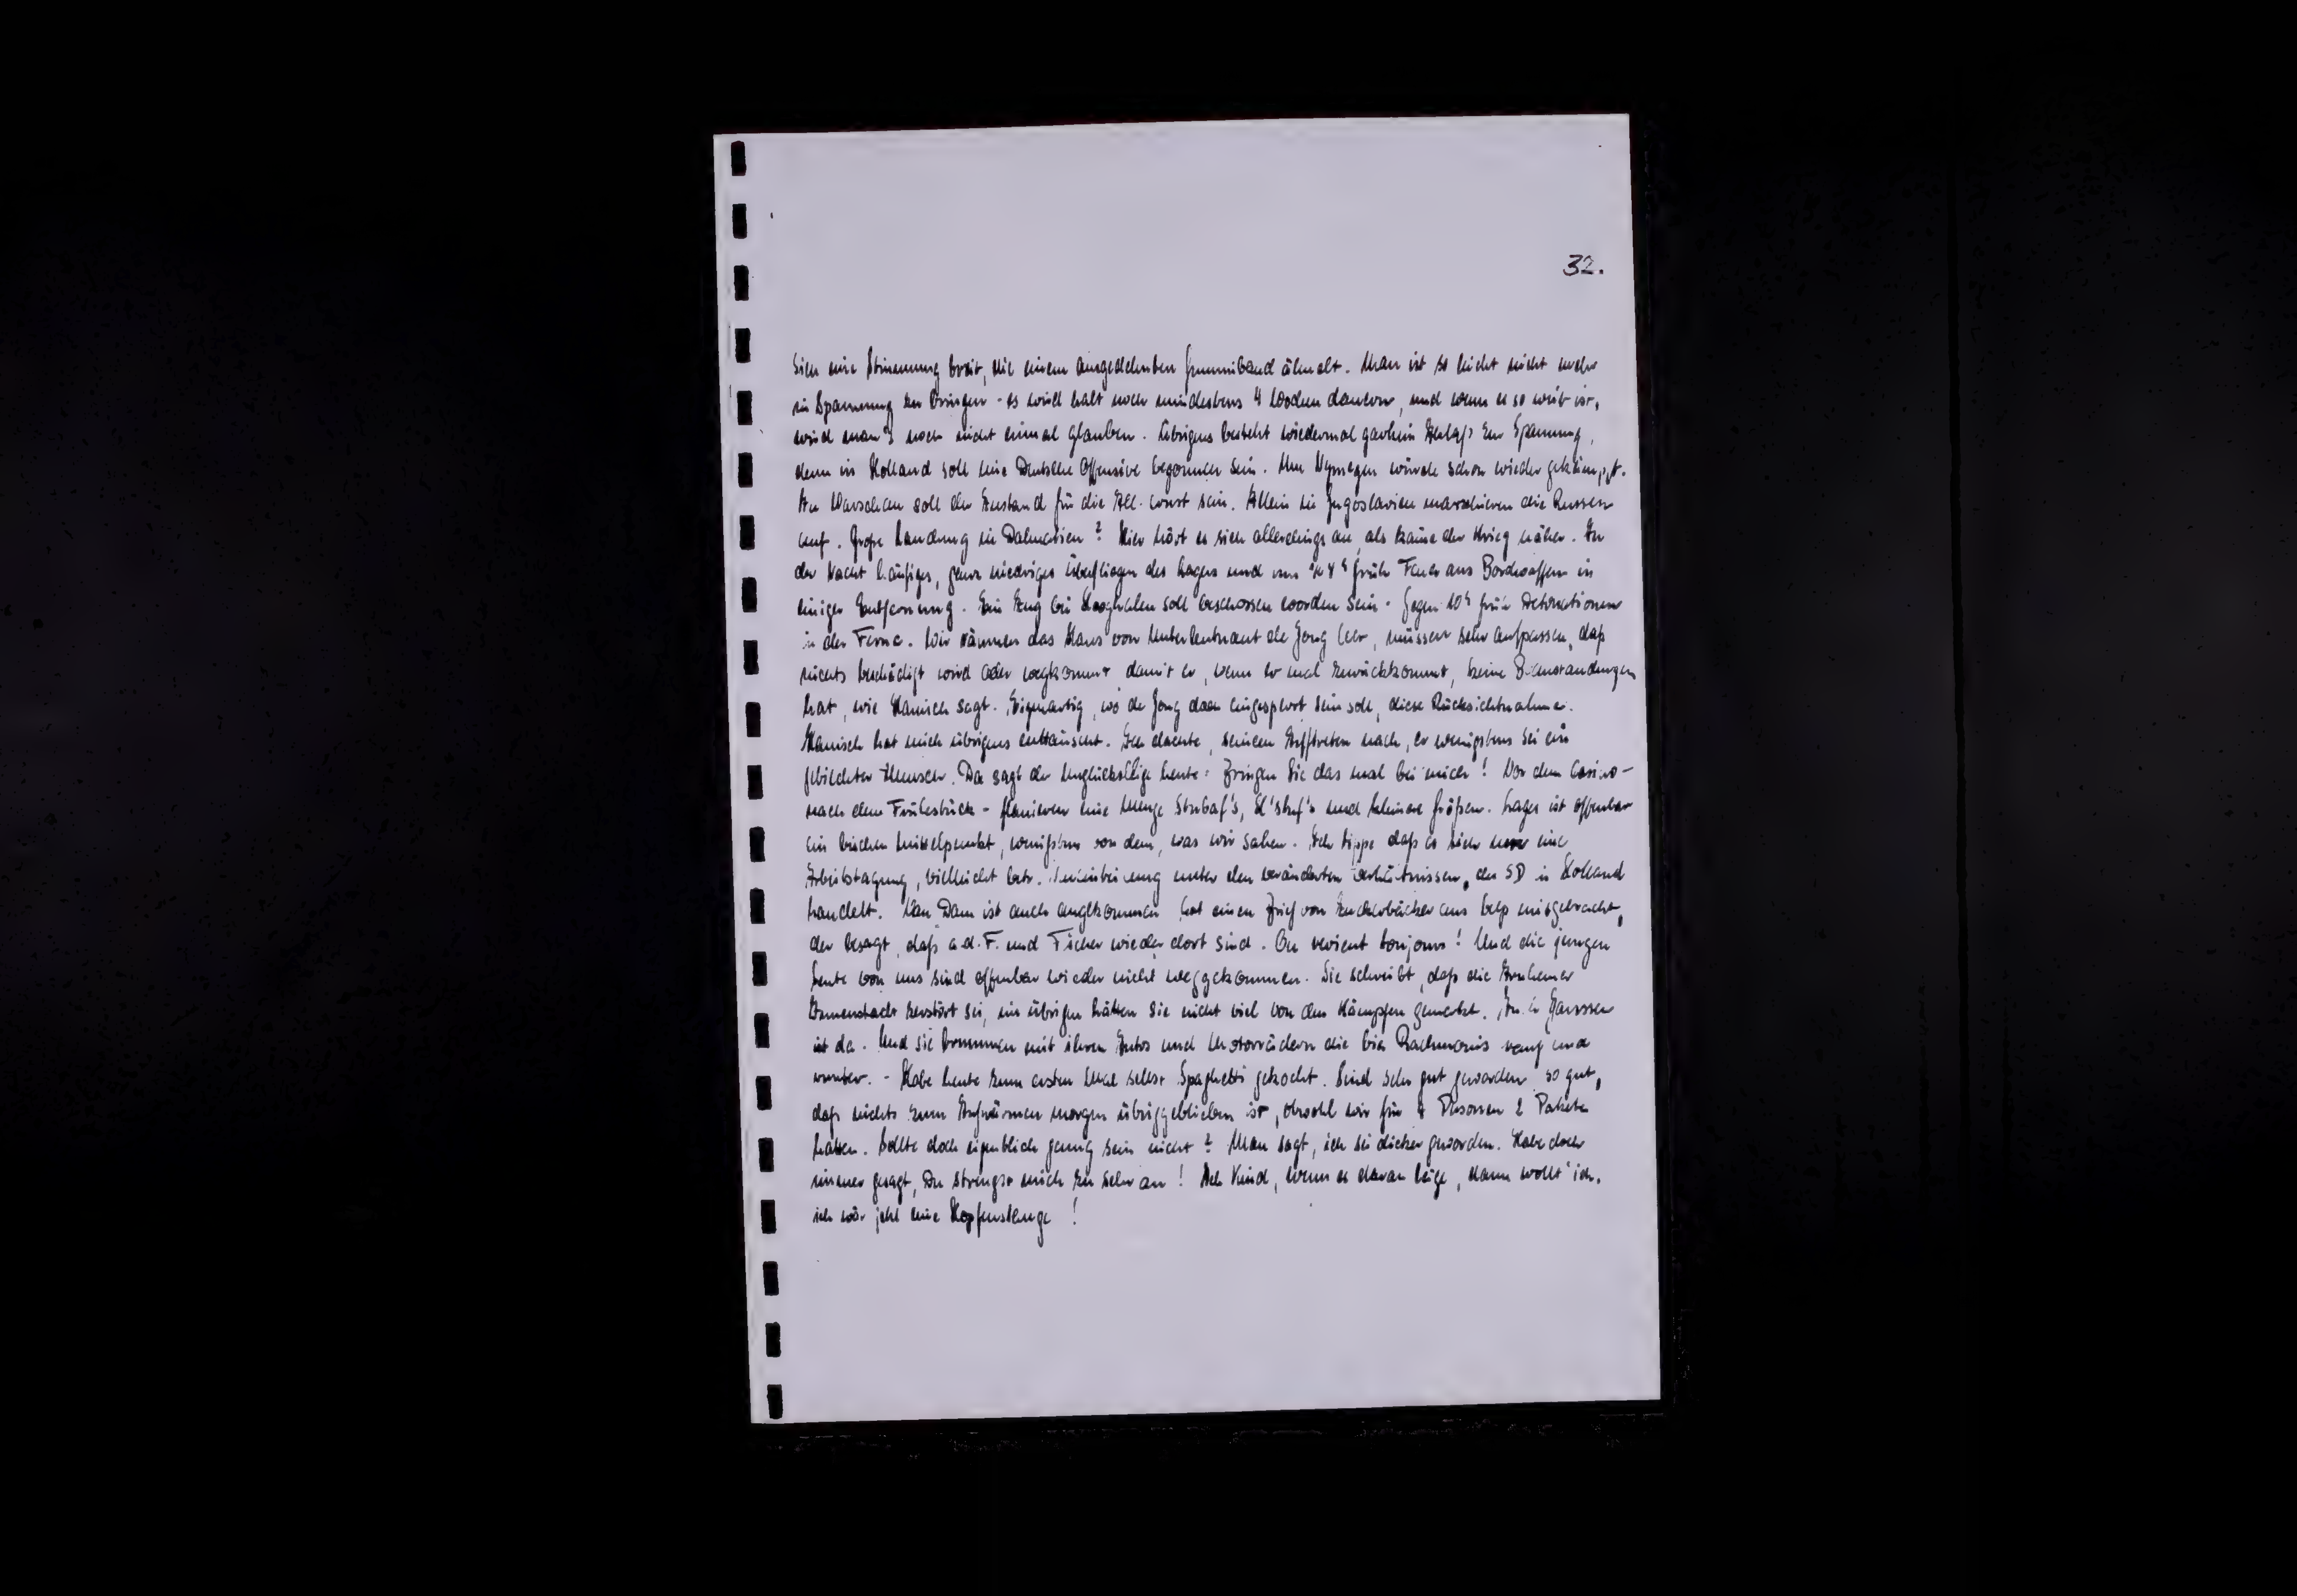 32.
sich eine Stimmung breit, die einem ausgedehnten Gummiband ähnelt. Man ist so leicht nicht mehr
in Spannung zu bringen - es wird halt noch mindestens 4 Wochen dauern, und wenn es so weit ist,
wird man's noch nicht einmal glauben. Übrigens besteht wiedermal garkein Anlaß zur Spannung,
denn in Holland soll eine Deutsche Offensive begonnen sein. Um Nymegen würde schon wieder gekämpft.
In Warschau soll der Zustand für die All. ernst sein. Allein in Jugoslavien marschieren die Russen
auf. Große Landung in Dalmatien? Hier hört es sich allerdings an, als käme der Krieg näher. In
der Nacht häufiges, ganz niedriges Überfliegen des Lagers und um früh Feuer aus Bordwaffen in
einiger Entfernung. Ein Zug bei Hooghalen soll beschossen worden sein. Gegen 10h früh Detonationen
in der Ferne. Wir räumen das Haus von Unterleutnant de Jong leer, müssen sehr aufpassen, daß
nichts beschädigt wird oder wegkommt damit er, wenn er mal zurückkommt, keine Beanstandungen
hat, wie Hanisch sagt. Eigenartig, wo de Jong doch eingesperrt sein soll, diese Rücksichtnahme.
Hanisch hat mich übrigens enttäuscht. Ich dachte, seinem Auftreten nach, er wenigstens sei ein
gebildeter Mensch. Da sagt der Unglückselige heute: Bringen Sie das mal bei mich! Vor dem Casino -
nach dem Frühstück - flanieren eine Menge Stubaf's, und kleinere Größen. Lages ist offenbar
ein bischen Mittelpunkt, wenigstens von dem, was wir sahen. Ich tippe daß es sich um eine
Arbeitstagung, vielleicht betr. unter den veränderten Verhältnissen, des SD in Holland
handelt. Van Dam ist auch angekommen hat einen Brief von aus mitgebracht,
der besagt, daß a.d.F. und Fischer wieder dort sind. On revient toujours! Und die jungen
Leute von uns sind offenbar wieder nicht weggekommen. Sie schreibt, daß die Arnhemer
Innenstadt zerstört sei, im übrigen hätten sie nicht viel von den Kämpfen gemerkt.
ist da. Und sie brummen mit ihren Autos und Motorrädern die rauf und
runter. - Habe heute zum ersten Mal selbst Spaghetti gekocht. Sind sehr gut geworden so gut,
daß nichts zum Aufwärmen morgen übriggeblieben ist, obwohl wir für Personen 2 Pakete
hatten. Sollte doch eigentlich genug sein nicht? Man sagt, ich sei dicker geworden. Habe doch
immer gesagt, Du strengst mich zu sehr an! Ach Kind, wenn es daran läge, dann wollt' ich,
ich wär jetzt eine Hopfenstange!